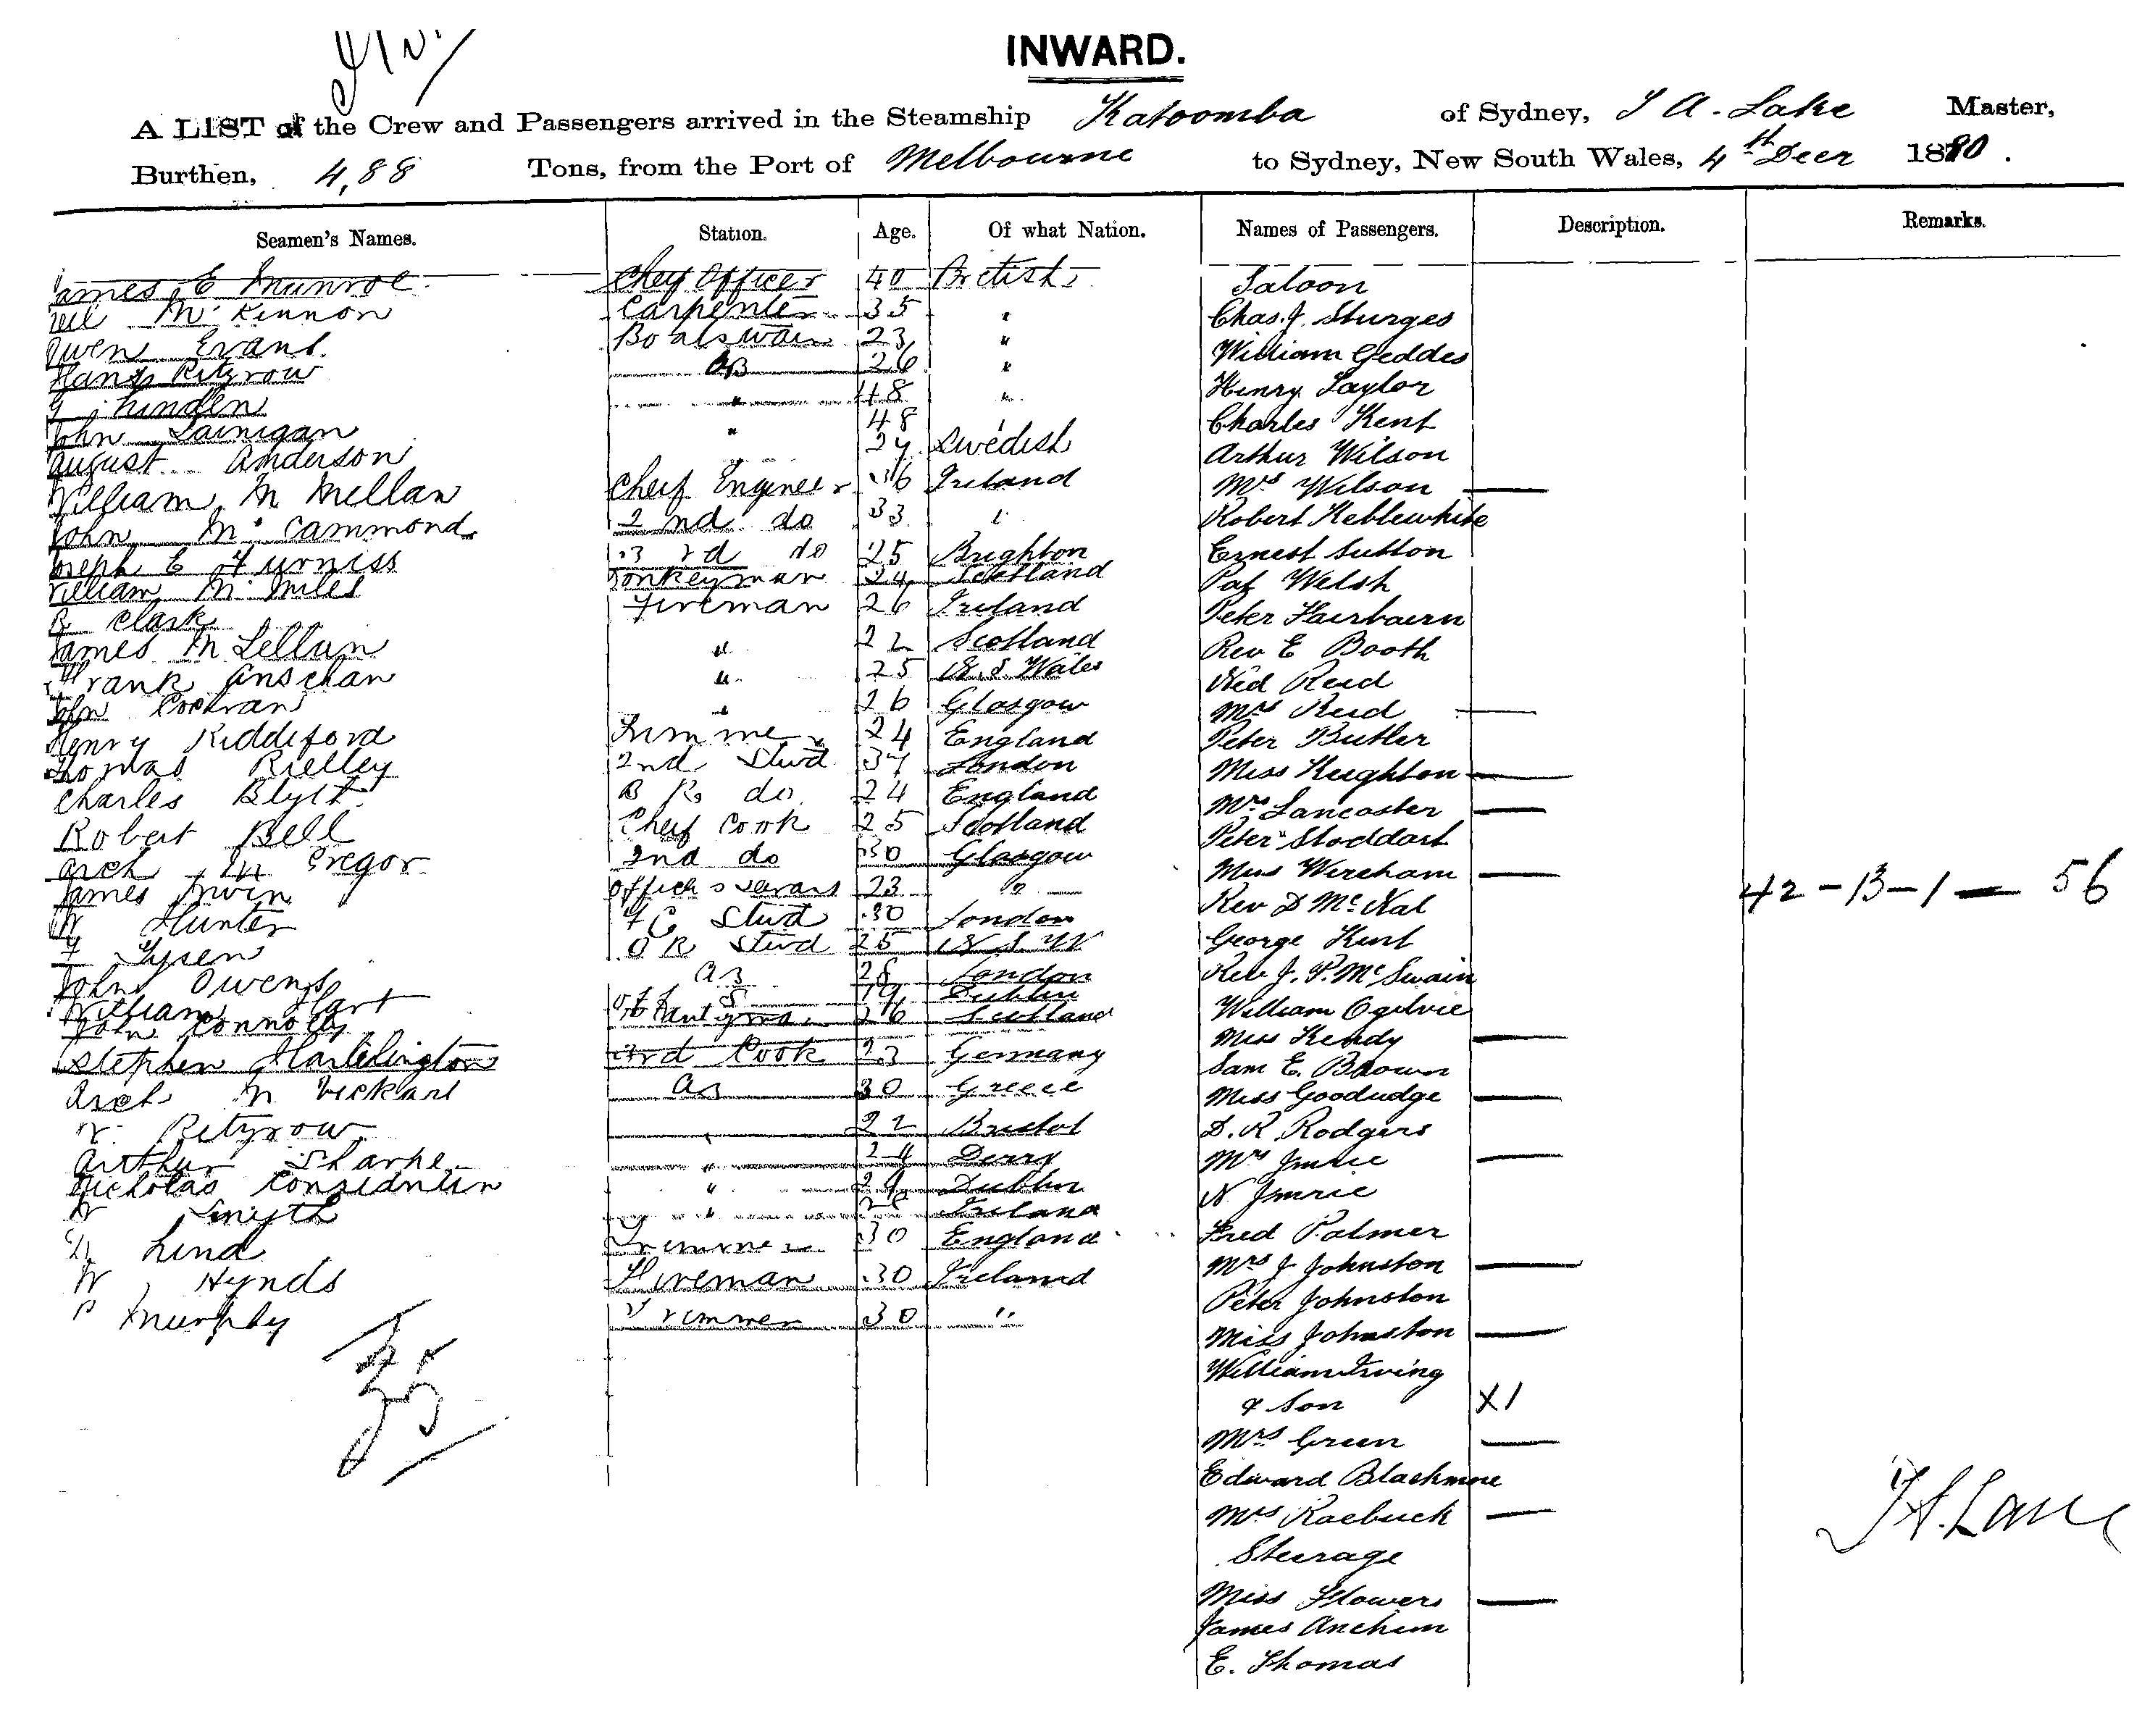 INWARD.
A LIST of the Crew and Passengers arrived in the Steamship Katoomba of Sydney, J A. Lake Master,
Burthen, 4,88 Tons, from the Port of Melbourne to Sydney, New South Wales, 4th Decr 1880.
Seamen's Names. Station. Age. Of what Nation. Names of Passengers. Description. Remarks.
James E Munroe Cheif Officer 40 British Saloon
Neil Mc Kinnon Carpenter 35 " Chas. J. Sturges
Owen Evans Boatswain 23 " William Geddes
Hans Pitzrow AB 26 " Henry Taylor
G. Linden " 48 " Charles Kent
John Lainigan " 48 Arthur Wilson
August Anderson 24 Swedish Mrs Wilson
William M Mellan Cheif Engineer 36 Ireland Robert Keblewhite
John Mc Cammond 2nd do 33 " Ernest Sutton
Joseph E Furniss 3rd do 25 Brighton Pat Welsh
William Mc Miles Donkeyman 24 Scotland Peter Fairbairn
R Clark Fireman 26 Ireland Rev E Booth
James M Lellan " 22 Scotland Ned Reid
Frank Anschan " 25 N. S. Wales Mrs Reid
John Cockran " 26 Glasgow Peter Butler
Henry Riddiford Trimmer 24 England Miss Keighton
Thomas Rielley 2nd Stwd 37 London Mrs Lancaster
Charles Blyth B R do 24 England Peter Stoddart
Robert Bell Cheif Cook 25 Scotland Miss Wercham
Arch Mc Gregor 2nd do 30 Glasgow Rev D Mc Nal 42-13-1 — 56
James Irwin Officers Servant 23 " George Kent
W Hunter F C Stwd 30 London Rev J. P. Mc Swain
F Tysen O R Stwd 25 N S W William Ogilvie
John Owens AB 28 London Miss Kendy
William Hart 19 Dublin Sam E. Brown
John Connolly Pantryman 26 Scotland Miss Goodudge
Stephen Hartelington 3rd Cook 23 Germany D. R Rodgers
Arch M Vickars AB 30 Greece Mrs Imrie
W. Pitzrow 22 Bristol N Imrie
Arthur Sharke " 24 Derry Fred Palmer
Nicholas Considnen " 29 Dublin Mrs J Johnston
W Smyth " Ireland Peter Johnston
Lind Trimmer 30 England Miss Johnston
W Hynds Fireman 30 Ireland William Irving
P Murphy Trimmer 30 " & Son X1
35
Mrs Green
Edward Blackmore
Mrs Roebuck
Steerage
Miss Flowers
James Anchim
E. Thomas